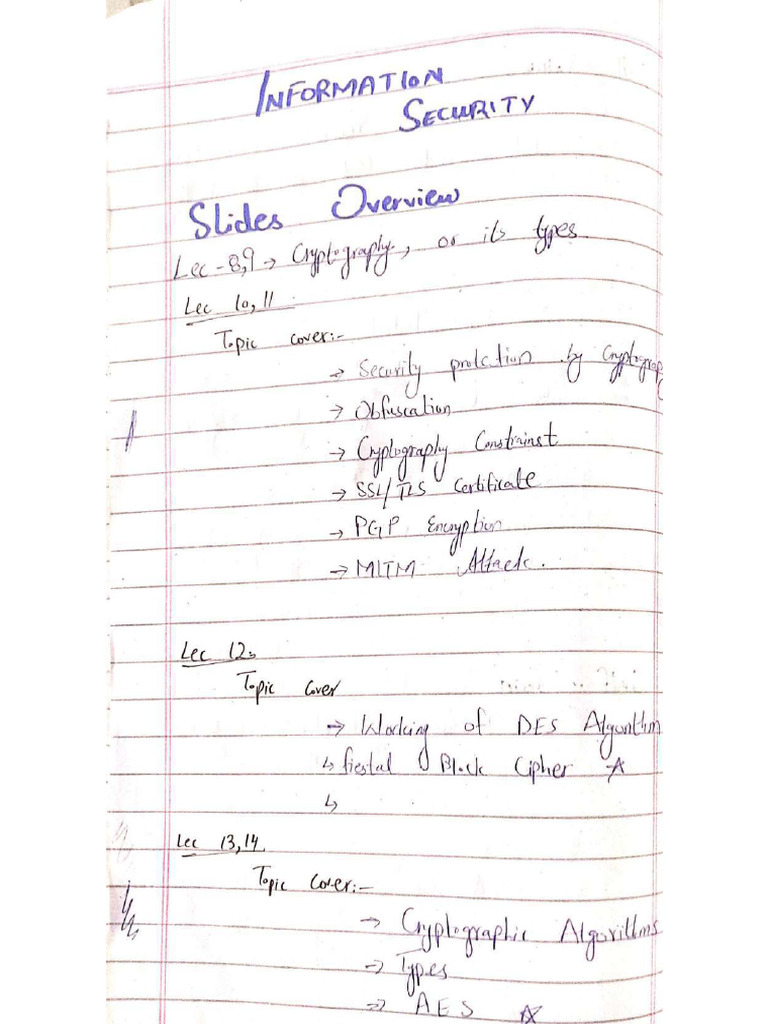 INFORMATION
SECURITY
Slides Overview
Lec - 8,9 → Cryptography, or its types.
Lec 10, 11
Topic cover:-
→ Security protction by Cryptograp
→ Obfuscation
→ Cryptography Constrainst
→ SSL/TLS Certificate
→ PGP Encryption
→ MITM Attack.
Lec 12:
Topic cover
→ Working of DES Algorithm
↳ fiestal Block Cipher ☆
↳
Lec 13,14.
Topic Cover:-
→ Cryptographic Algorithms
→ Types
→ AES ☆